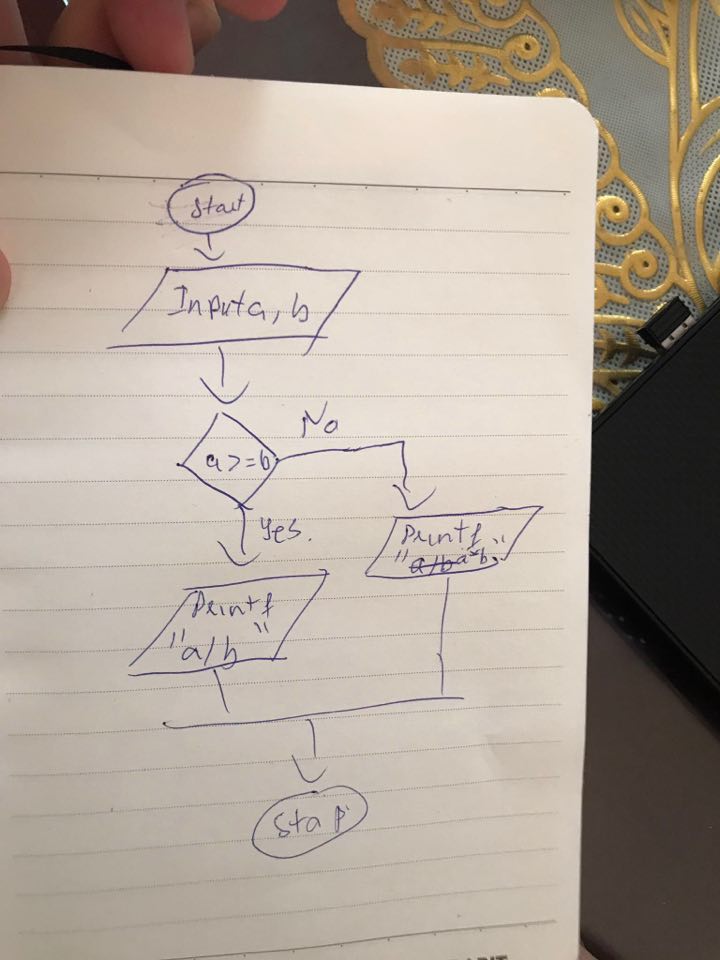 Start
Input a, b
a >= b
No
Yes.
Printf
"a*b"
Printf
"a/b"
Stop